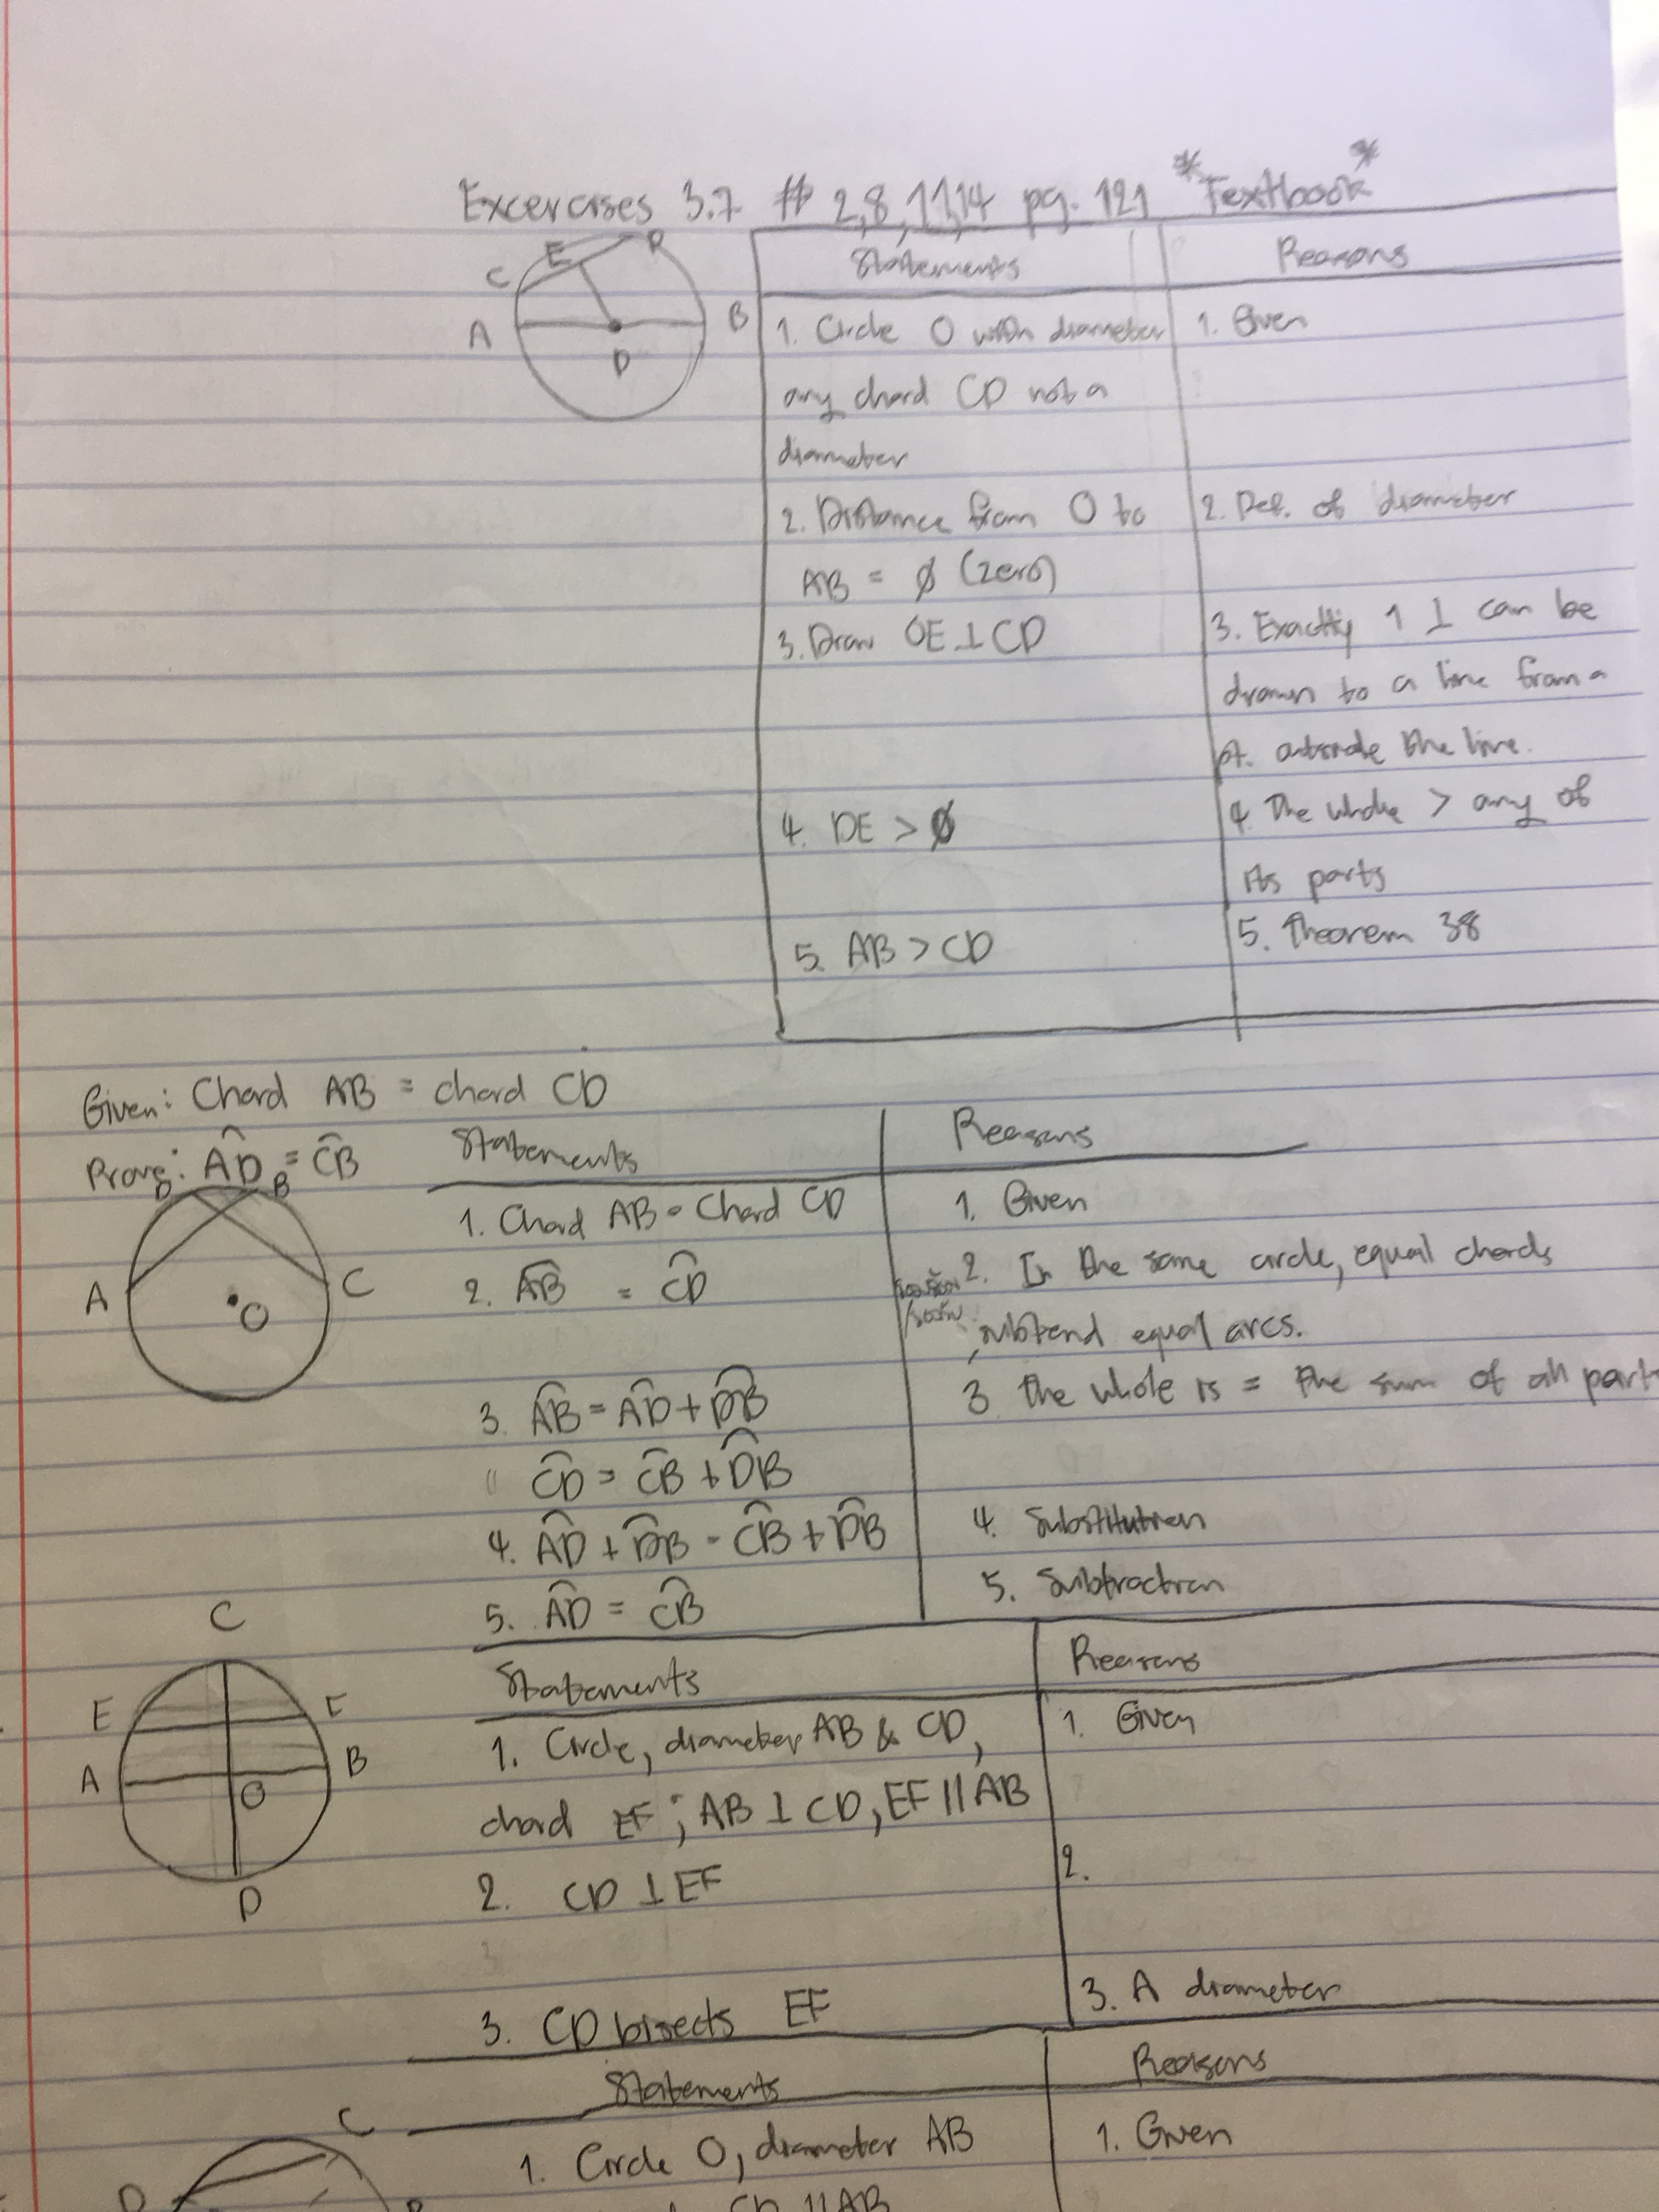 Excercises 3.7 # 2,8,11,14 pg. 121 *Textbook*
C E D
A B
D
Statements Reasons
1. Circle O with diameter 1. Given
any chord CD not a
diameter
2. Distance from O to 2. Def. of diameter
AB = ∅ (zero)
3. Draw OE ⊥ CD 3. Exactly 1 ⊥ can be
drawn to a line from a
pt. outside the line.
4. OE > ∅ 4. The whole > any of
its parts
5. AB > CD 5. Theorem 38
Given: Chord AB = chord CD
Prove: A͡D = C͡B
D B
A C
O
Statements Reasons
1. Chord AB = Chord CD 1. Given
2. A͡B = C͡D 2. In the same circle, equal chords
subtend equal arcs.
3. A͡B = A͡D + D͡B 3 the whole is = the sum of all part
C͡D = C͡B + D͡B
4. A͡D + D͡B = C͡B + D͡B 4. Substitution
5. A͡D = C͡B 5. Subtraction
C
E F
A B
O
D
Statements Reasons
1. Circle, diameter AB & CD, 1. Given
chord EF; AB ⊥ CD, EF || AB
2. CD ⊥ EF 2.
3. CD bisects EF 3. A diameter
Statements Reasons
C
D B
1. Circle O, diameter AB 1. Given
CD || AB